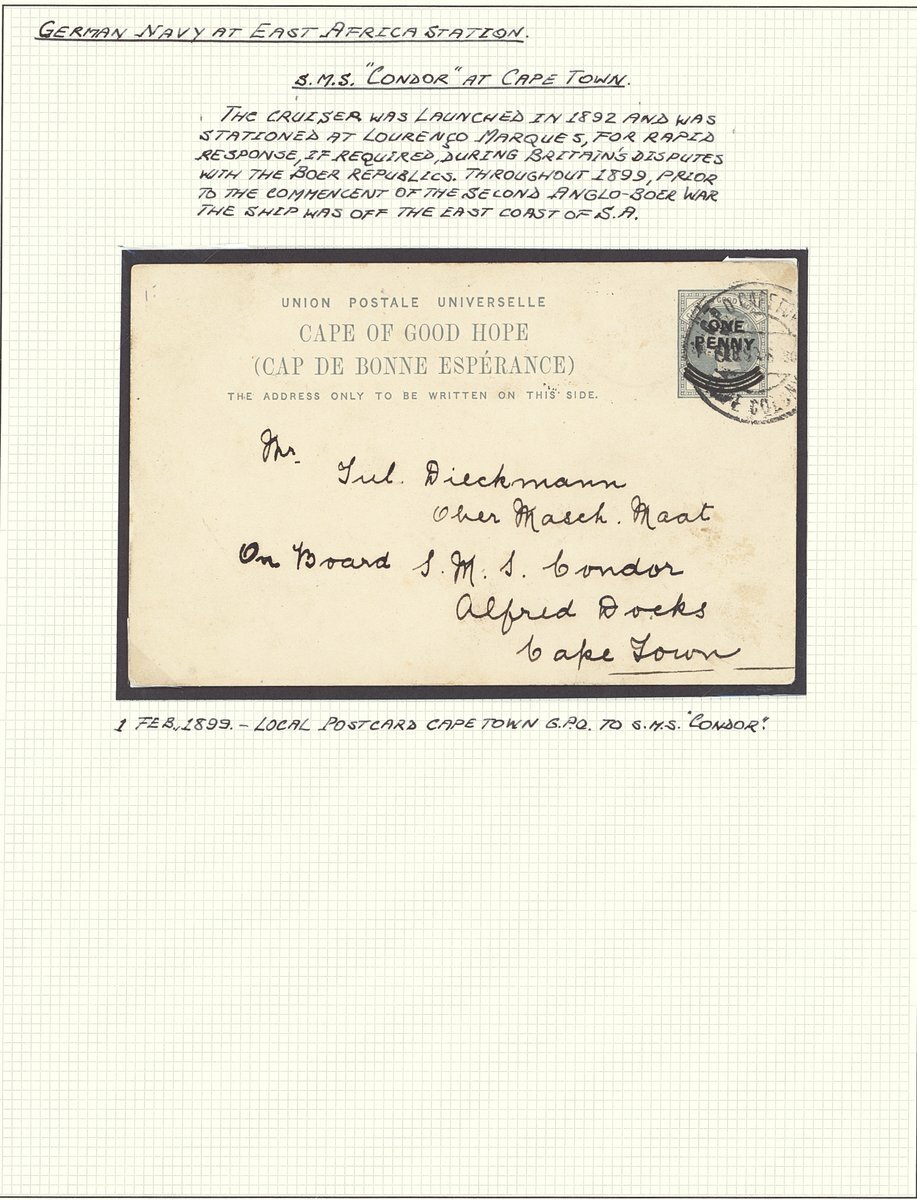 GERMAN NAVY AT EAST AFRICA STATION.
S.M.S. "CONDOR" AT CAPE TOWN.
THE CRUISER WAS LAUNCHED IN 1892 AND WAS
STATIONED AT LOURENÇO MARQUES, FOR RAPID
RESPONSE, IF REQUIRED, DURING BRITAIN'S DISPUTES
WITH THE BOER REPUBLICS. THROUGHOUT 1899, PRIOR
TO THE COMMENCENT OF THE SECOND ANGLO-BOER WAR
THE SHIP WAS OFF THE EAST COAST OF S.A.
UNION POSTALE UNIVERSELLE
CAPE OF GOOD HOPE
(CAP DE BONNE ESPÉRANCE)
THE ADDRESS ONLY TO BE WRITTEN ON THIS SIDE.
ONE
PENNY
Mr.
Jul. Dieckmann
Ober Masch. Maat
On Board S. M. S. Condor
Alfred Docks
Cape Town
1 FEB., 1899. - LOCAL POSTCARD CAPE TOWN G.P.O. TO S.M.S. "CONDOR".